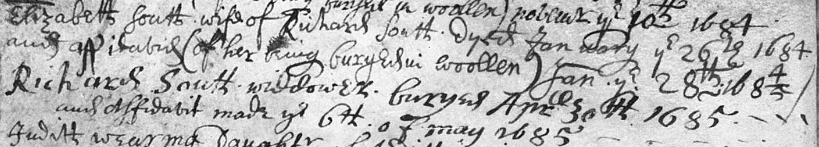 buryed in woollen) novembr ye 10th 1684
Elizabeth South wife of Richard South Dyed January ye 26th 1684
and affidavid (of her being buryed in woollen) Jan. ye 28th 168 4/5
Richard South widdower buryed April 30th 1685
and Affidavit made ye 6th of may 1685
Judith Daughter of